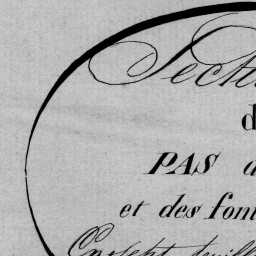 Secti
d
PAS d
et des font